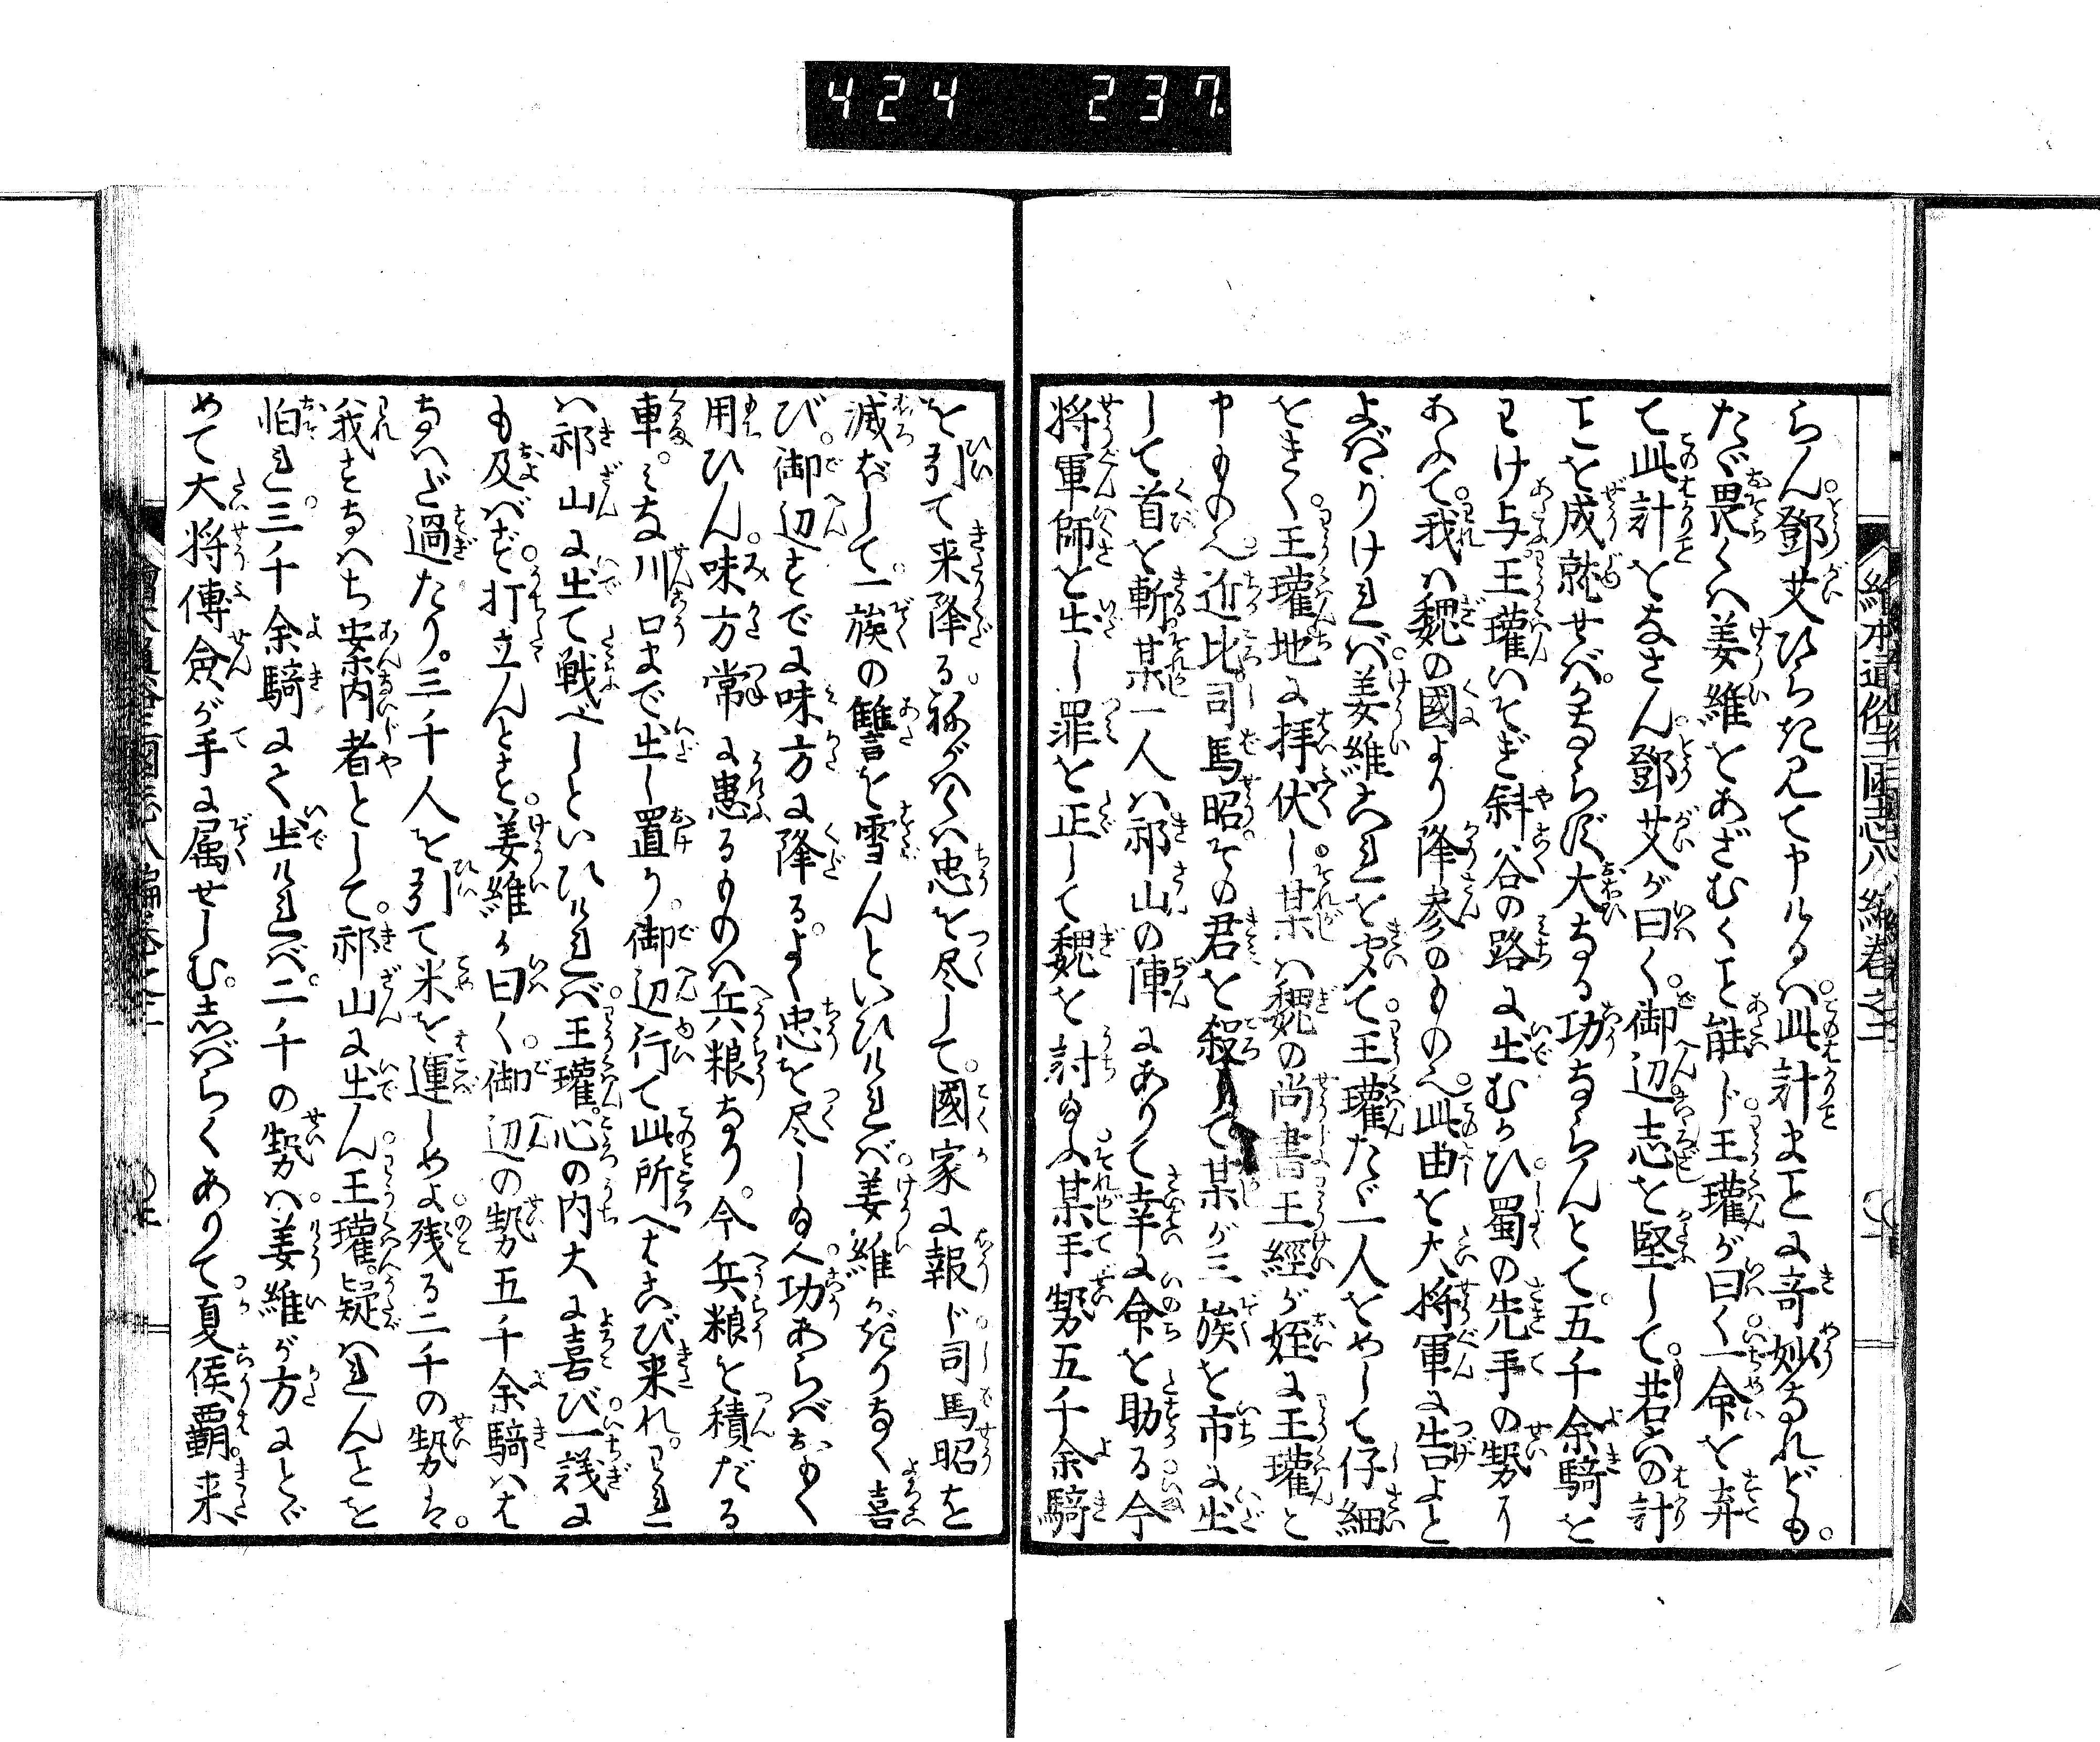 424 237
繪本通俗三國志八編卷之二
らん。鄧艾ひらき見て申けるハ。此計まことに奇妙なれども。
たゞ畏くハ姜維をあざむくこと能じ。王瓘が曰く。一命を弃
て此計をなさん。鄧艾が曰く。御辺志を堅して。若此の計
ことを成就せバ。かならず大なる功ならんとて。五千余騎を
わけ与。王瓘いそぎ斜谷の路に出むかひ。蜀の先手の勢に
あふて。我ハ魏の國より降参のもの也。此由を大将軍に告よと
よばりければ。姜維これを聞て。王瓘たゞ一人をめして仔細
をきく。王瓘地に拝伏し。某ハ魏の尚書王經が姪に王瓘と
申もの也。近比司馬昭。その君を殺して。某が三族を市に出
して首を斬。某一人ハ祁山の陣にありて幸に命を助る。今
将軍師を出し罪を正して魏を討給ふ。某手勢五千余騎
を引て来降る。祢がハくハ忠を尽して。國家に報じ。司馬昭を
滅ぼして。一族の讐を雪んといひければ。姜維かぎりなく喜
び。御辺すでに味方に降る。よく忠を尽し給へ。功あらバおもく
用ひん。味方常に患るものハ兵粮なり。今兵粮を積だる
車。みな川口まで出し置り。御辺行て此所へはこび来れ。われ
ハ祁山に出て戦べしといひければ。王瓘心の内大に喜び。一議に
も及バず。打立んとす。姜維が曰く。御辺の勢五千余騎ハは
なハだ過たり。三千人を引て米を運しめよ。残る二千の勢は。
我すなハち案内者として。祁山に出ん。王瓘疑ハれんことを
怕れ。三千余騎にて出ければ。二千の勢ハ。姜維が方にとゞ
めて大将傅僉が手に属せしむ。志ばらくありて。夏侯覇来